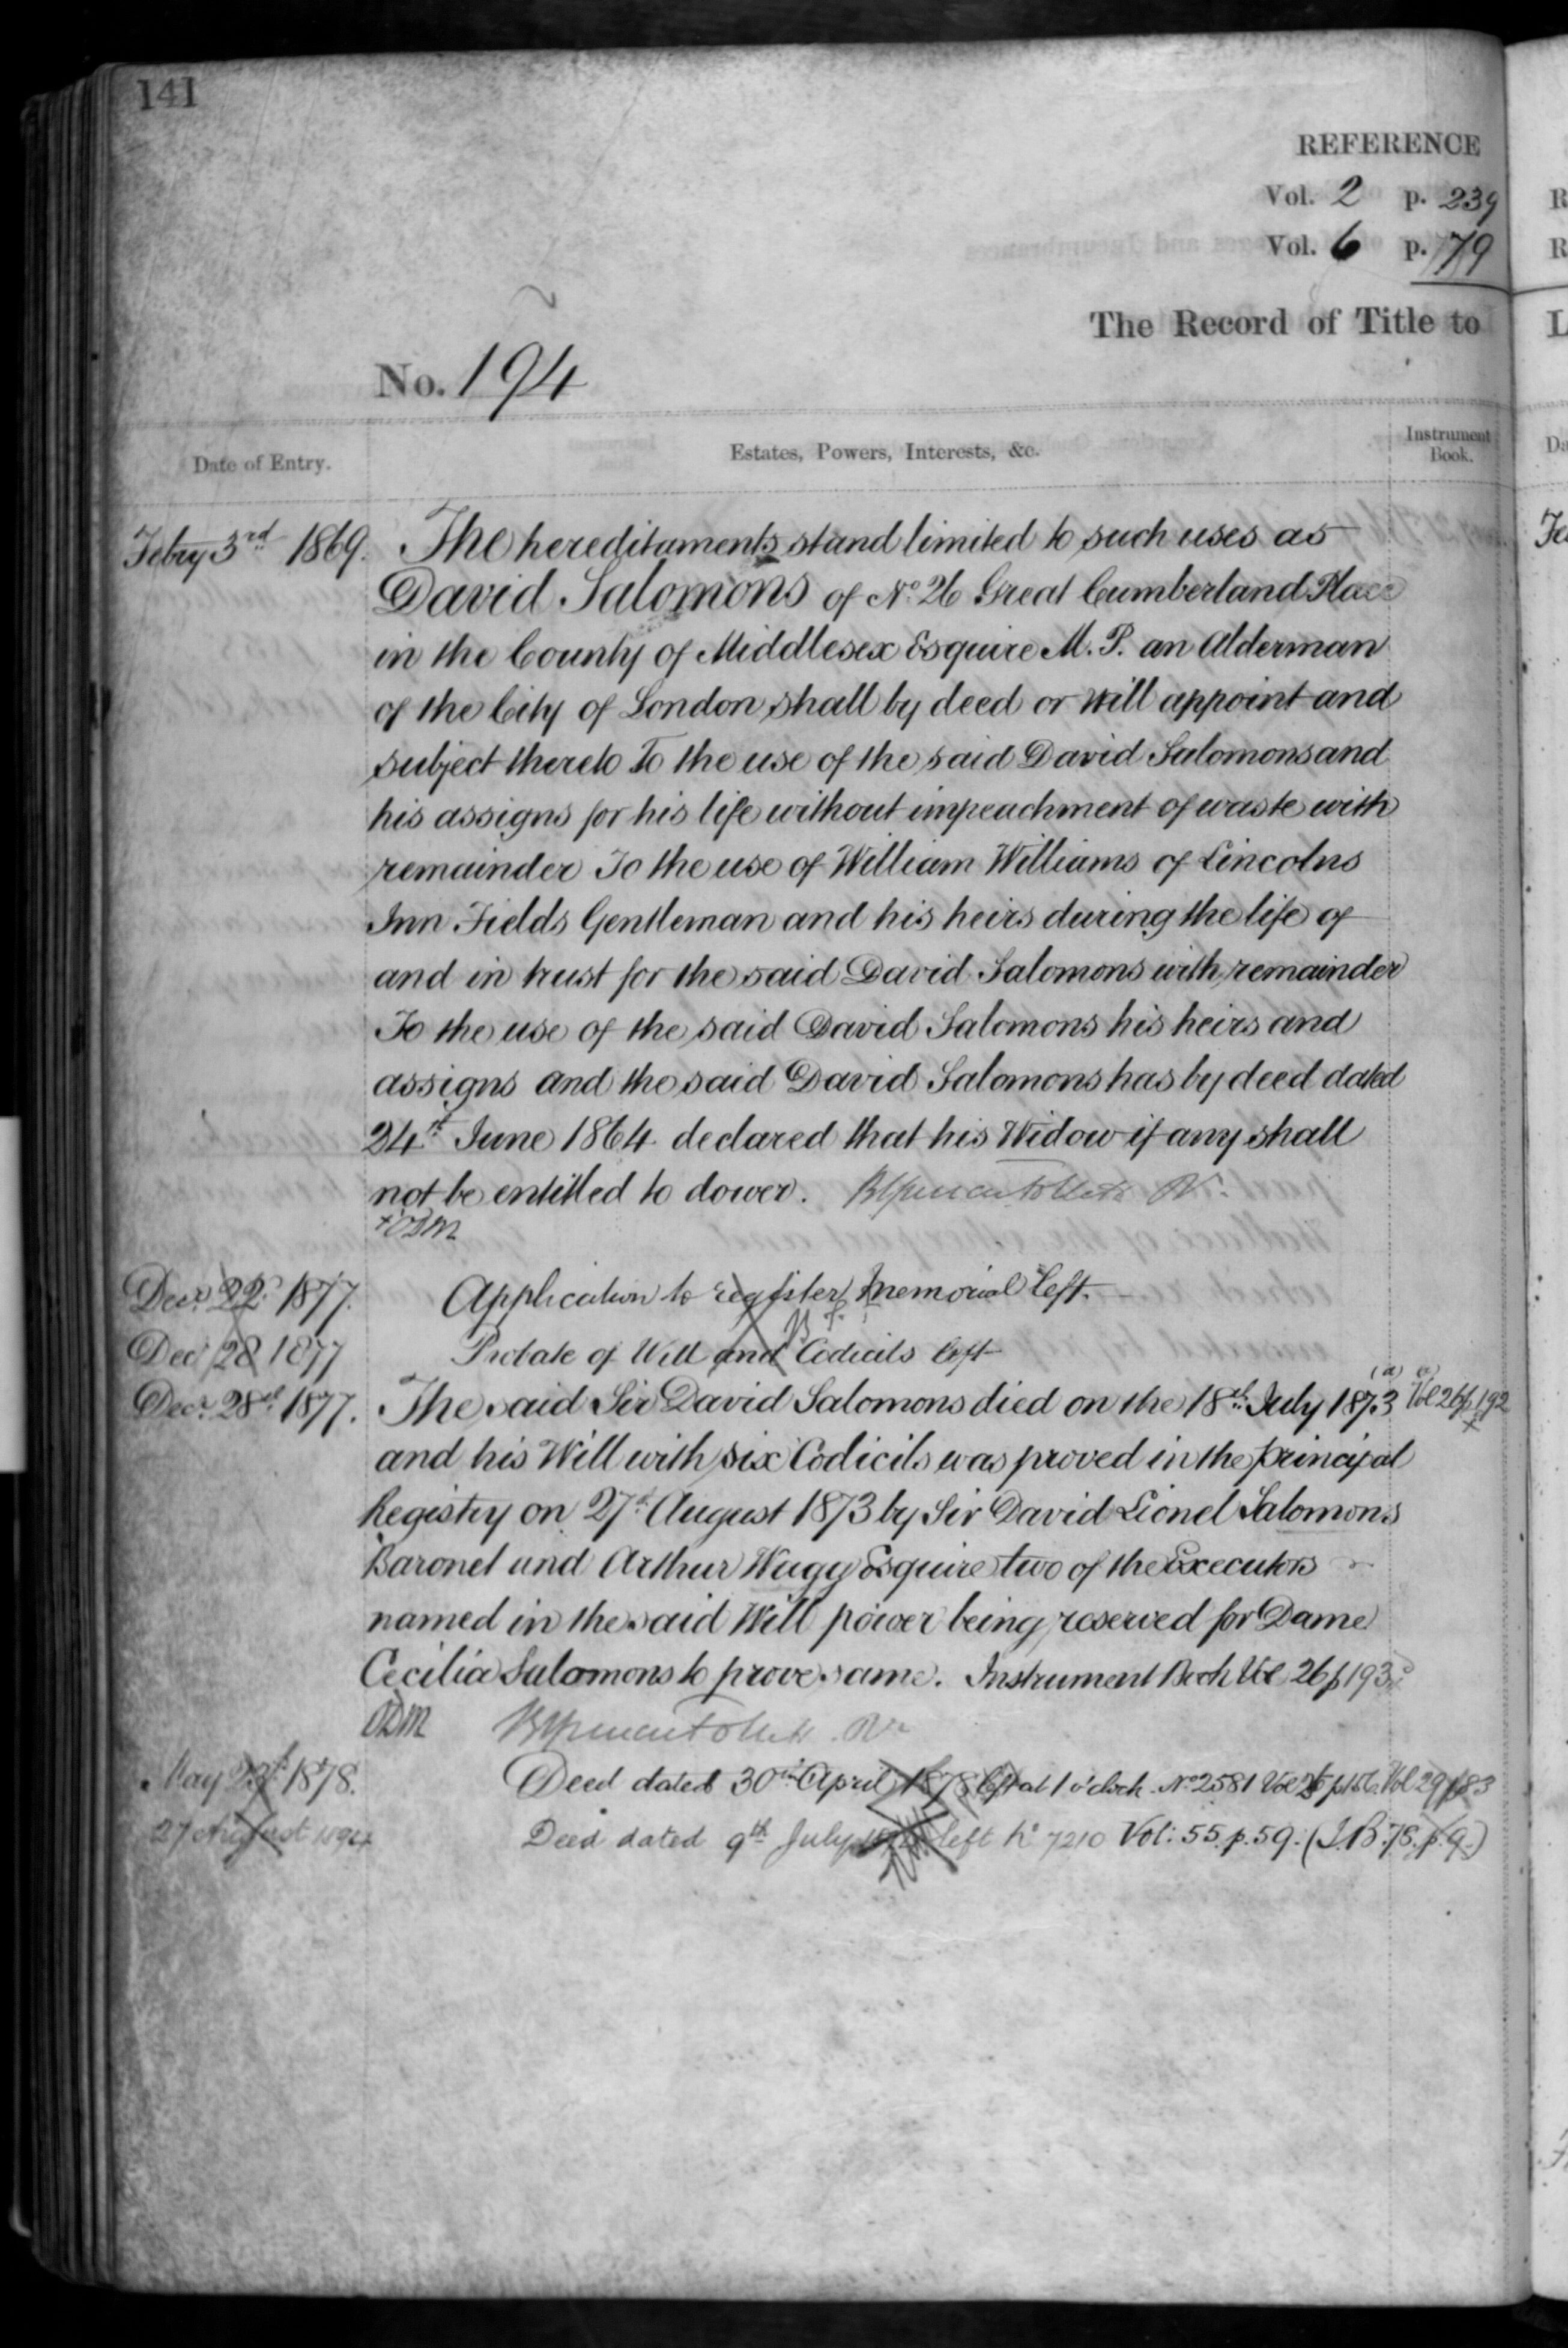 141
REFERENCE
Vol. 2 p. 239
Vol. 6 p. 179
The Record of Title to
No. 194
Date of Entry.
Estates, Powers, Interests, &c.
Instrument Book.
Febry 3rd 1869. The hereditaments stand limited to such uses as
David Salomons of No. 26 Great Cumberland Place
in the County of Middlesex Esquire M.P. an Alderman
of the City of London shall by deed or Will appoint and
subject thereto To the use of the said David Salomons and
his assigns for his life without impeachment of waste with
remainder To the use of William Williams of Lincolns
Inn Fields Gentleman and his heirs during the life of
and in trust for the said David Salomons with remainder
To the use of the said David Salomons his heirs and
assigns and the said David Salomons has by deed dated
24th June 1864 declared that his Widow if any shall
not be entitled to dower.
Decr. 22 1877. Application to register memorial left.
Decr 28 1877 Probate of Will and Codicils left
Decr. 28th 1877. The said Sir David Salomons died on the 18th July 1873 (a) (a) Vol 26 p 192
and his Will with six Codicils was proved in the principal
Registry on 27th August 1873 by Sir David Lionel Salomons
Baronet and Arthur Wagg Esquire two of the Executors
named in the said Will power being reserved for Dame
Cecilia Salomons to prove same. Instrument Book Vol 26 p 193
May 23rd 1878. Deed dated 30th April 1878 left at 1 o'clock No. 2581 Vol 29 p 83
27 August 1894 Deed dated 9th July left No 7210 Vol: 55. p. 59. (I.B. 78. p. 9.)